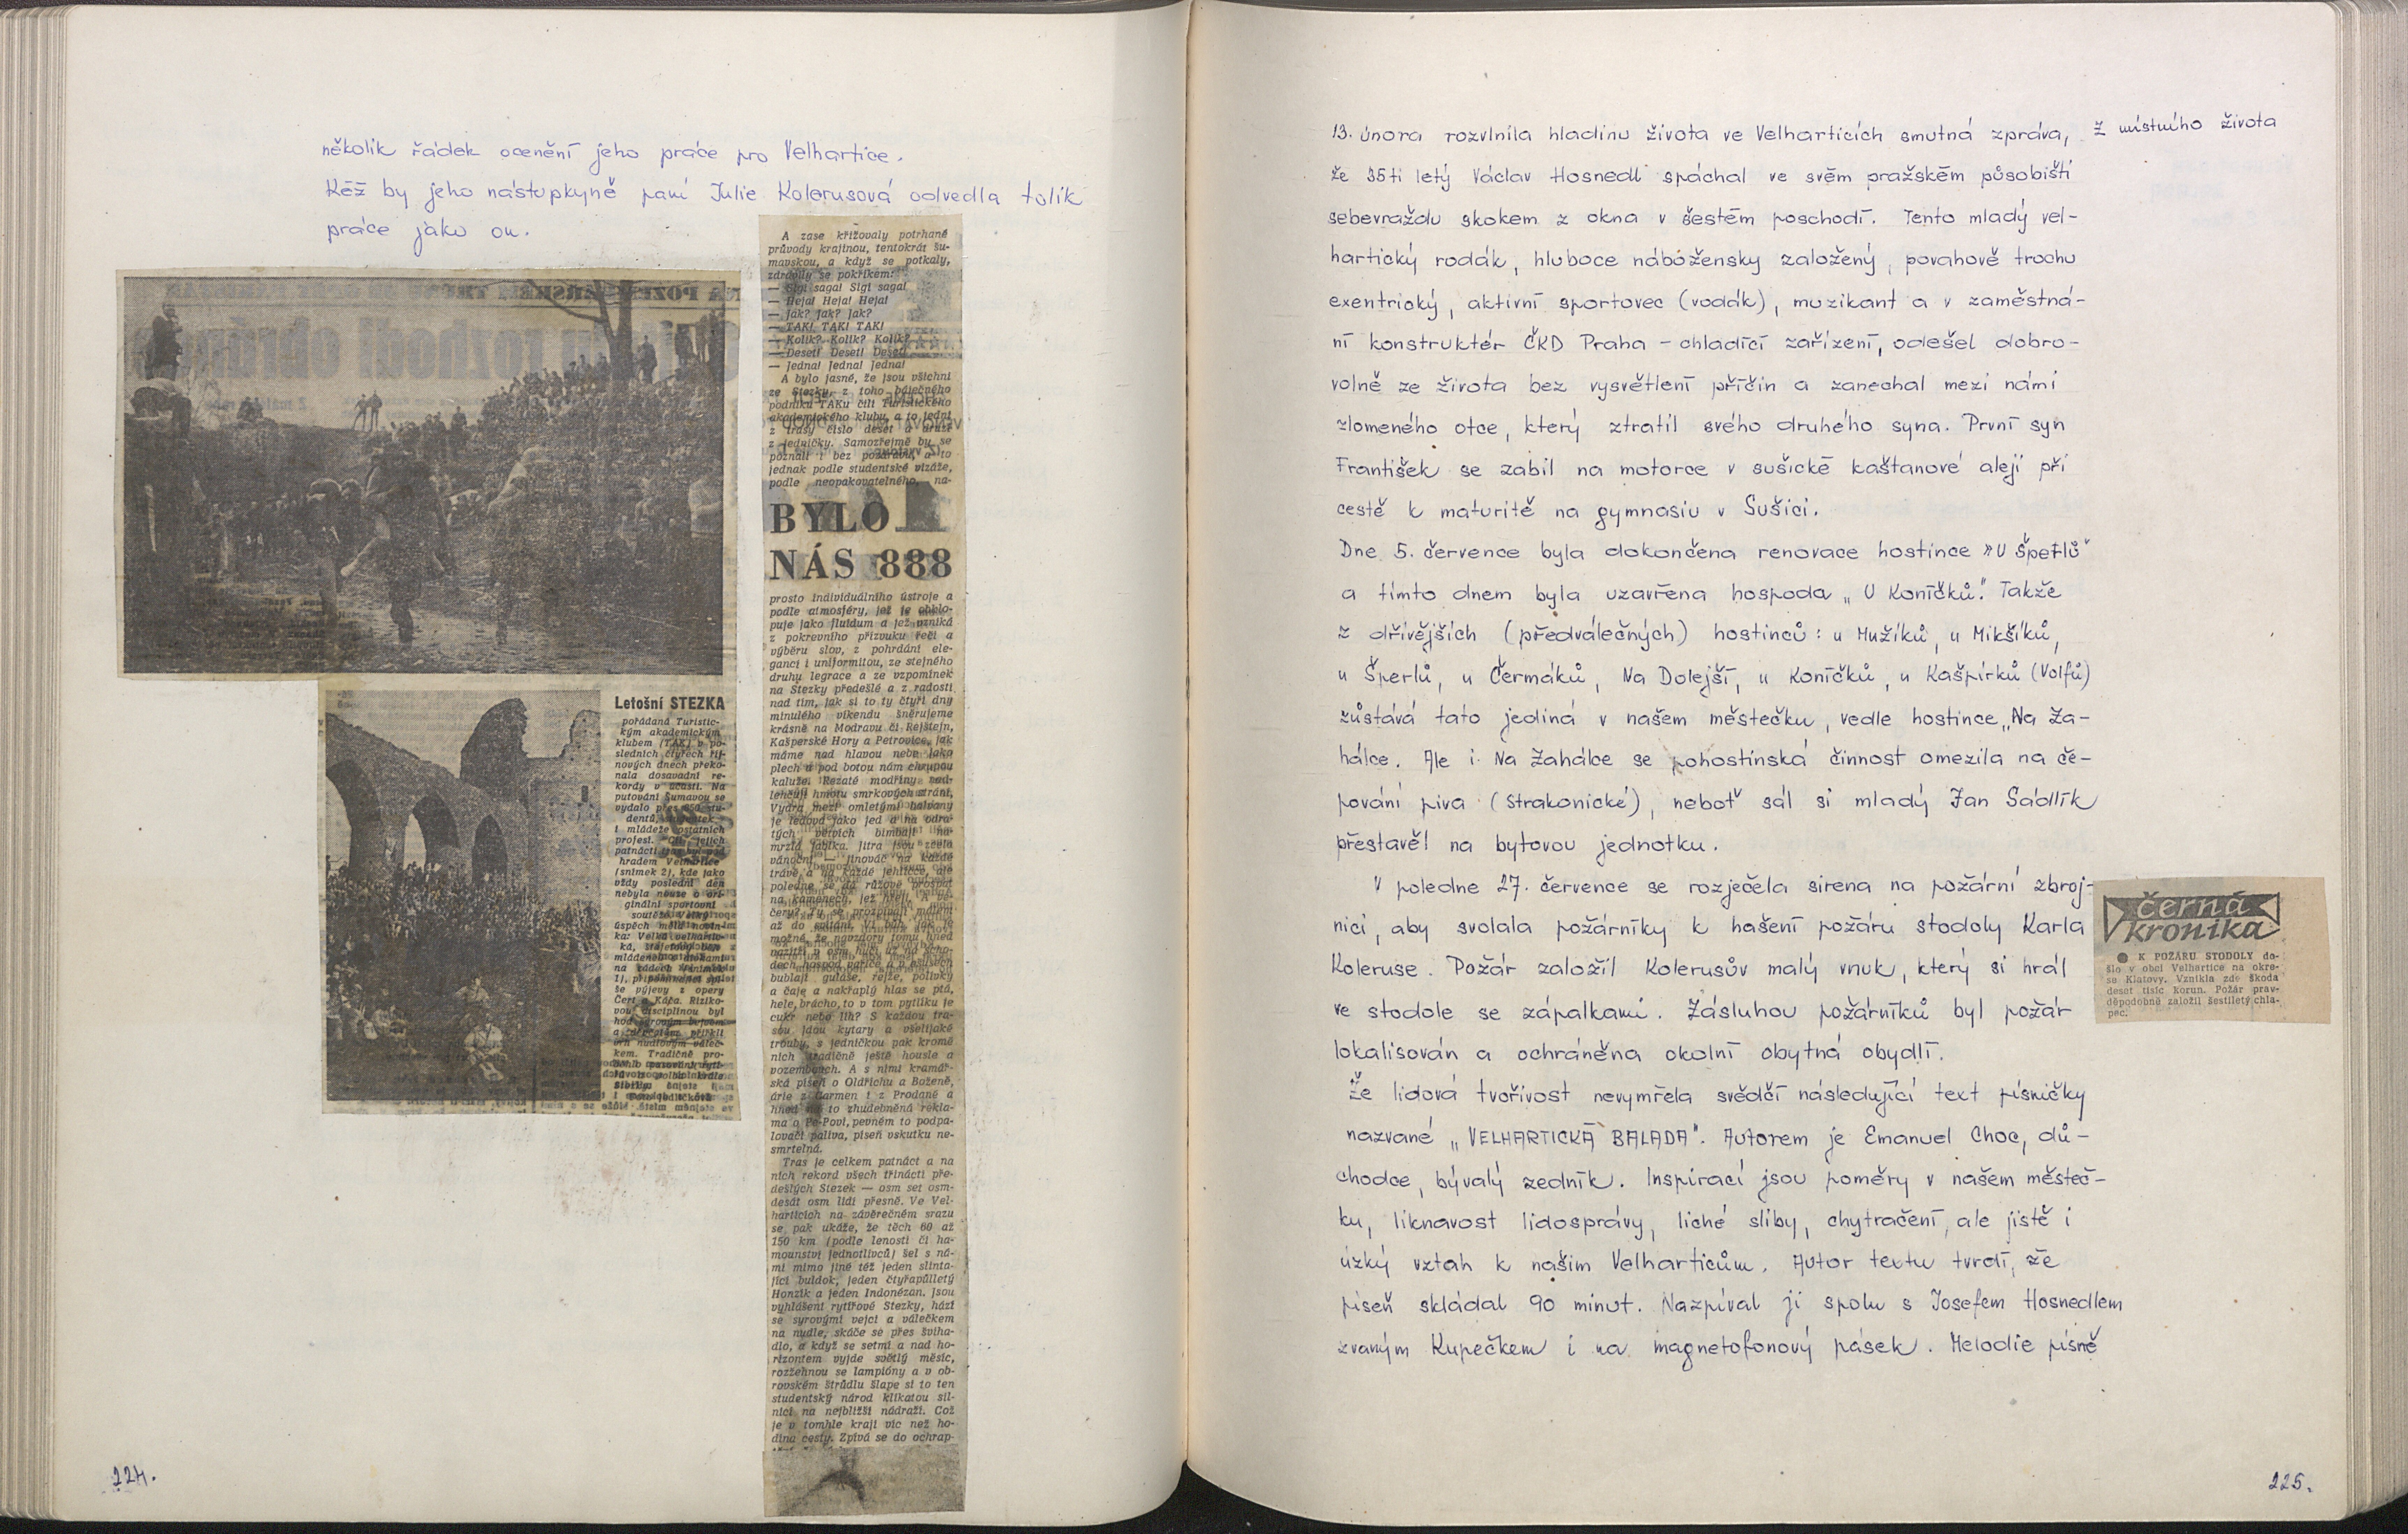 několik řádek ocenění jeho práce pro Velhartice.
Kéž by jeho nástupkyně paní Julie Kolerusová odvedla tolik
práce jako on.
A zase křižovaly potrhané
průvody krajinou, tentokrát šu-
mavskou, a když se potkaly,
zdravily se pokřikem:
— Sigi saga! Sigi saga!
— Heja! Heja! Heja!
— Jak? Jak? Jak?
— TAK! TAK! TAK!
— Kolik? Kolik? Kolik?
— Deset! Deset! Deset!
— Jedna! Jedna! Jedna!
A bylo jasné, že jsou všichni
ze Stezky, z toho báječného
podniku TAKu čili Turistického
akademického klubu, a to jedni
z trasy číslo deset a druzí
z jedničky. Samozřejmě by se
poznali i bez pozdravu, a to
jednak podle studentské vizáže,
podle neopakovatelného, na-
BYLO
NÁS 888
prosto individuálního ústroje a
podle atmosféry, jež je obklo-
puje jako fluidum a jež vzniká
z pokrevního přízvuku řeči a
výběru slov, z pohrdání ele-
gancí i uniformitou, ze stejného
druhu legrace a ze vzpomínek
na Stezky předešlé a z radosti
nad tím, jak si to ty čtyři dny
minulého víkendu šněrujeme
krásně na Modravu či Rejštejn,
Kašperské Hory a Petrovice, jak
máme nad hlavou nebe jako
plech a pod botou nám chrupou
kaluže. Rezaté modříny nad-
lehčují hmotu smrkových strání,
Vydra mezi omletými balvany
je ledová jako jed a na odra-
tých větvích bimbají na-
mrzlá jablka. Jitra jsou zcela
vánoční — jinovác na každé
trávě a na každé jehličce, ale
poledne se dá růžově prospat
na kamenech, jež hřejí. A ve-
čery? Ty se prozpívají málem
až do svítání,
možné, že navzdory tomu hned
dech hospod pařice a v ešusech
bublají guláše, rejže, polívky
a čaje a nakřáplý hlas se ptá,
hele, brácho, to v tom pytlíku je
cukr nebo líh? S každou tra-
sou jdou kytary a všelijaké
trouby, s jedničkou pak kromě
nich tradičně ještě housle a
vozembouch. A s nimi kramář-
ská píseň o Oldřichu a Boženě,
árie z Carmen i z Prodané a
hned na to zhudebněná rekla-
ma o Pe-Povi, pevném to podpa-
lovači paliva, píseň vskutku ne-
smrtelná.
Tras je celkem patnáct a na
nich rekord všech třinácti pře-
dešlých Stezek — osm set osm-
desát osm lidí přesně. Ve Vel-
harticích na závěrečném srazu
se pak ukáže, že těch 60 až
150 km (podle lenosti či ha-
mounství jednotlivců) šel s ná-
mi mimo jiné též jeden slinta-
jící buldok, jeden čtyřapůlletý
Honzík a jeden Indonézan. Jsou
vyhlášeni rytířové Stezky, hází
se syrovými vejci a válečkem
na nudle, skáče se přes šviha-
dlo, a když se setmí a nad ho-
rizontem vyjde světlý měsíc,
rozžehnou se lampióny a v ob-
rovském štrúdlu šlape si to ten
studentský národ klikatou sil-
nicí na nejbližší nádraží. Což
je v tomhle kraji víc než ho-
dina cesty. Zpívá se do ochrap-
Letošní STEZKA
pořádaná Turistic-
kým akademickým
klubem (TAK) v po-
sledních čtyřech říj-
nových dnech překo-
nala dosavadní re-
kordy v účasti. Na
putování Šumavou se
vydalo přes 850 stu-
dentů,
i mládeže ostatních
profesí. Cíl jejich
patnácti
hradem Velhartice
(snímek 2), kde jako
vždy poslední den
nebyla nouze o ori-
ginální sportovní
soutěže. Velký
úspěch měla novin-
ka: Velká velhartic-
ká,
na zádech (snímek
1), připomínající spí-
še výjevy z opery
Čert a Káča. Riziko-
vou disciplínou byl
hod syrovým vejcem
a
vrh nudlovým váleč-
kem. Tradičně pro-
224.
13. února rozvlnila hladinu života ve Velharticích smutná zpráva,
Z místního života
že 35ti letý Václav Hosnedl spáchal ve svém pražském působišti
sebevraždu skokem z okna v šestém poschodí. Tento mladý vel-
hartický rodák, hluboce nábožensky založený, povahově trochu
exentrický, aktivní sportovec (vodák), muzikant a v zaměstná-
ní konstruktér ČKD Praha - chladící zařízení, odešel dobro-
volně ze života bez vysvětlení příčin a zanechal mezi námi
zlomeného otce, který ztratil svého druhého syna. První syn
František se zabil na motorce v sušické kaštanové aleji při
cestě k maturitě na gymnasiu v Sušici.
Dne 5. července byla dokončena renovace hostince „U Šperlů"
a tímto dnem byla uzavřena hospoda „U Koníčků". Takže
z dřívějších (předválečných) hostinců: u Mužíků, u Mikšíků,
u Šperlů, u Čermáků, Na Dolejší, u Koníčků, u Kašpírků (Volfů)
zůstává tato jediná v našem městečku, vedle hostince „Na Za-
hálce. Ale i Na Zahálce se pohostinská činnost omezila na če-
pování piva (Strakonické), neboť sál si mladý Jan Sádlík
přestavěl na bytovou jednotku.
V poledne 27. července se rozječela sirena na požární zbroj-
nici, aby svolala požárníky k hašení požáru stodoly Karla
Koleruse. Požár založil Kolerusův malý vnuk, který si hrál
ve stodole se zápalkami. Zásluhou požárníků byl požár
lokalisován a ochráněna okolní obytná obydlí.
černá
kronika
● K POŽÁRU STODOLY do-
šlo v obci Velhartice na okre-
se Klatovy. Vznikla zde škoda
deset tisíc korun. Požár prav-
děpodobně založil šestiletý chla-
pec.
Že lidová tvořivost nevymřela svědčí následující text písničky
nazvané „VELHARTICKÁ BALADA". Autorem je Emanuel Choc, dů-
chodce, bývalý zedník. Inspirací jsou poměry v našem městeč-
ku, liknavost lidosprávy, liché sliby, chytračení, ale jistě i
úzký vztah k našim Velharticům. Autor textu tvrdí, že
píseň skládal 90 minut. Nazpíval ji spolu s Josefem Hosnedlem
zvaným Kupečkem i na magnetofonový pásek. Melodie písně
225.